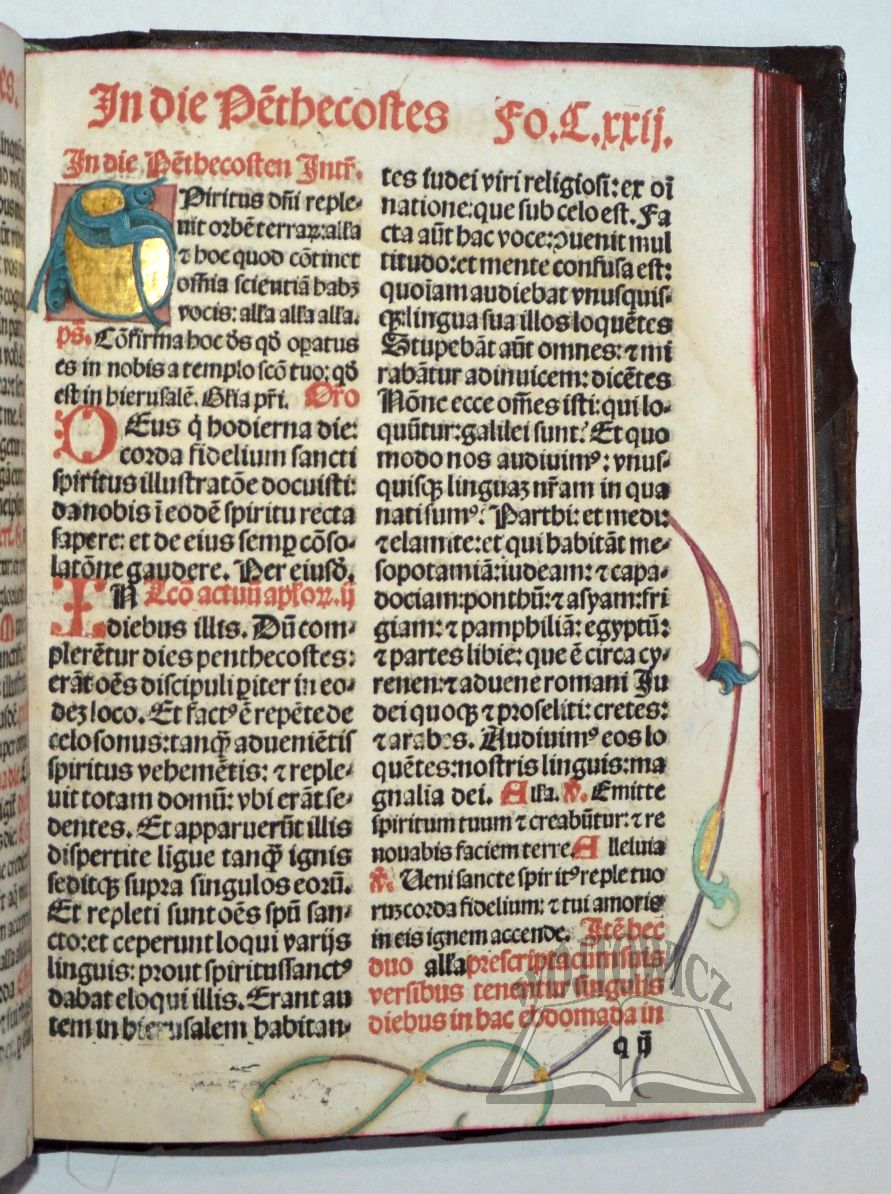 In die Pēthecostes Fo.C.xxij.
In die Pēthecosten Intr̄.
SPiritus dn̄i reple-
uit orbē terraꝝ: alľa
⁊ hoc quod cōtinet
om̄ia scientiā habꝫ
vocis: alľa alľa alľa.
ps. Cōfirma hoc de̾s qd̾ oꝑatus
es in nobis a templo scō tuo: qd̾
est in hierusalē. Gľia pr̄i. Oro
DEus q̇ hodierna die:
corda fidelium sancti
spiritus illustratōe docuisti:
da nobis ī eodē spiritu recta
sapere: et de eius semꝑ cōso-
latōne gaudere. Per eiusd̾.
IN Lcō actuū apľoꝝ. ij
diebus illis. Dū com-
plerētur dies penthecostes:
erāt oēs discipuli ꝑiter in eo-
deꝫ loco. Et factꝰ ē repēte de
celo sonus: tanqͣ̄ adueniētis
spiritus vehemētis: ⁊ reple-
uit totam domū: vbi erāt se-
dentes. Et apparuerūt illis
dispertite līgue tanqͣ̄ ignis
seditqꝫ supra singulos eorū.
Et repleti sunt oēs spū san-
cto: et ceperunt loqui varijs
linguis: prout spiritussanctꝰ
dabat eloqui illis. Erant au
tem in hierusalem habitan-
tes iudei viri religiosi: ex oī
natione: que sub celo est. Fa
cta aūt hac voce: ↄuenit mul
titudo: et mente confusa est:
quoīam audiebat vnusquis-
qꝫ: lingua sua illos loquētes
Stupebāt aūt omnes: ⁊ mi
rabātur adinuicem: dicētes
Nōne ecce om̄es isti: qui lo-
quūtur: galilei sunt? Et quo
modo nos audiuimꝰ: vnus-
quisqꝫ linguaꝫ nr̄am in qua
nati sumꝰ? Parthi: et medi:
⁊ elamite: et qui habitāt me-
sopotamiā: iudeam: ⁊ capa-
dociam: ponthū: ⁊ asyam: fri
giam: ⁊ pamphiliā: egyptū:
⁊ partes libie: que ē circa cy-
renen: ⁊ aduene romani Iu
dei quoqꝫ ⁊ proseliti: cretes:
⁊ arabes. Audiuimꝰ eos lo
quētes: nostris linguis: ma
gnalia dei. Alľa. ℣. Emitte
spiritum tuum ⁊ creabūtur: ⁊ re
nouabis faciem terre. Alleluia
℣. Ueni sancte spiritꝰ reple tuo
ruꝫ corda fidelium: ⁊ tui amoris
in eis ignem accende. Itē hec
duo alľa prescripta cum suis
versibus tenentur singulis
diebus in hac ebdomada in
q ij